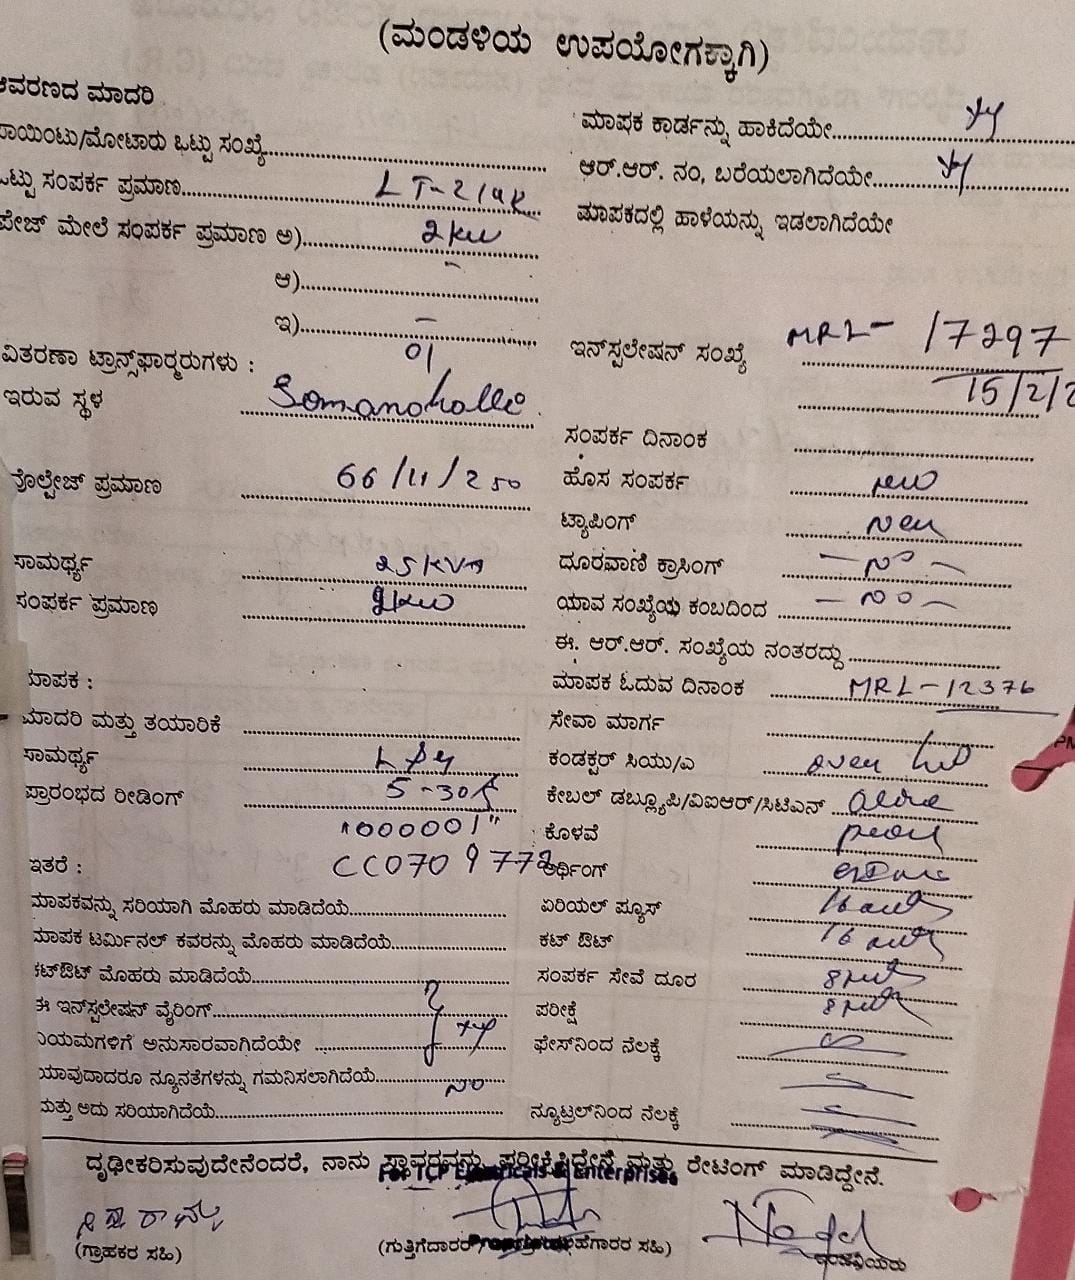 (ಮಂಡಳಿಯ ಉಪಯೋಗಕ್ಕಾಗಿ)
ಆವರಣದ ಮಾದರಿ
ಪಾಯಿಂಟು/ಮೋಟಾರು ಒಟ್ಟು ಸಂಖ್ಯೆ
ಒಟ್ಟು ಸಂಪರ್ಕ ಪ್ರಮಾಣ LT-2/4K
ಪೇಜ್ ಮೇಲೆ ಸಂಪರ್ಕ ಪ್ರಮಾಣ ಅ) 2kw
ಆ) –
ಇ) –
ವಿತರಣಾ ಟ್ರಾನ್ಸ್‌ಫಾರ್‍ಮರುಗಳು : 01
ಇರುವ ಸ್ಥಳ Somanahalli
ವೊಲ್ಟೇಜ್ ಪ್ರಮಾಣ 66/11/250
ಸಾಮರ್ಥ್ಯ 25KVA
ಸಂಪರ್ಕ ಪ್ರಮಾಣ 2kw
ಮಾಪಕ :
ಮಾದರಿ ಮತ್ತು ತಯಾರಿಕೆ
ಸಾಮರ್ಥ್ಯ
ಪ್ರಾರಂಭದ ರೀಡಿಂಗ್ 5-30A
"000001"
ಇತರೆ : CC0709772
ಮಾಪಕವನ್ನು ಸರಿಯಾಗಿ ಮೊಹರು ಮಾಡಿದೆಯೆ
ಮಾಪಕ ಟರ್ಮಿನಲ್ ಕವರನ್ನು ಮೊಹರು ಮಾಡಿದೆಯೆ
ಕಟ್‌ಔಟ್ ಮೊಹರು ಮಾಡಿದೆಯೆ
ಈ ಇನ್‌ಸ್ಟಲೇಷನ್ ವೈರಿಂಗ್
ನಿಯಮಗಳಿಗೆ ಅನುಸಾರವಾಗಿದೆಯೇ
ಯಾವುದಾದರೂ ನ್ಯೂನತೆಗಳನ್ನು ಗಮನಿಸಲಾಗಿದೆಯೆ no
ಮತ್ತು ಅದು ಸರಿಯಾಗಿದೆಯೆ
ಮಾಪಕ ಕಾರ್ಡನ್ನು ಹಾಕಿದೆಯೇ
ಆರ್.ಆರ್. ನಂ, ಬರೆಯಲಾಗಿದೆಯೇ
ಮಾಪಕದಲ್ಲಿ ಹಾಳೆಯನ್ನು ಇಡಲಾಗಿದೆಯೇ
ಇನ್‌ಸ್ಟಲೇಷನ್ ಸಂಖ್ಯೆ MRL- 17297
15/2/2
ಸಂಪರ್ಕ ದಿನಾಂಕ
ಹೊಸ ಸಂಪರ್ಕ new
ಟ್ಯಾಪಿಂಗ್ new
ದೂರವಾಣಿ ಕ್ರಾಸಿಂಗ್ – no –
ಯಾವ ಸಂಖ್ಯೆಯ ಕಂಬದಿಂದ – no –
ಈ. ಆರ್.ಆರ್. ಸಂಖ್ಯೆಯ ನಂತರದ್ದು
ಮಾಪಕ ಓದುವ ದಿನಾಂಕ MRL-12376
ಸೇವಾ ಮಾರ್ಗ
ಕಂಡಕ್ಟರ್ ಸಿಯು/ಎ
ಕೇಬಲ್ ಡಬ್ಲ್ಯೂಪಿ/ವಿಐಆರ್/ಸಿಟಿಎಸ್
ಕೊಳವೆ
ಅರ್ಥಿಂಗ್
ಏರಿಯಲ್ ಪ್ಯೂಸ್
ಕಟ್ ಔಟ್
ಸಂಪರ್ಕ ಸೇವೆ ದೂರ
ಪರೀಕ್ಷೆ
ಫೇಸ್‌ನಿಂದ ನೆಲಕ್ಕೆ
ನ್ಯೂಟ್ರಲ್‌ನಿಂದ ನೆಲಕ್ಕೆ
ದೃಢೀಕರಿಸುವುದೇನೆಂದರೆ, ನಾನು ಸ್ಥಾವರವನ್ನು ಪರೀಕ್ಷಿಸಿದ್ದೇನೆ ಮತ್ತು ರೇಟಿಂಗ್ ಮಾಡಿದ್ದೇನೆ.
For TCP Electricals & Enterprises
(ಗ್ರಾಹಕರ ಸಹಿ)
(ಗುತ್ತಿಗೆದಾರರ Proprietor ಸಹಿ)